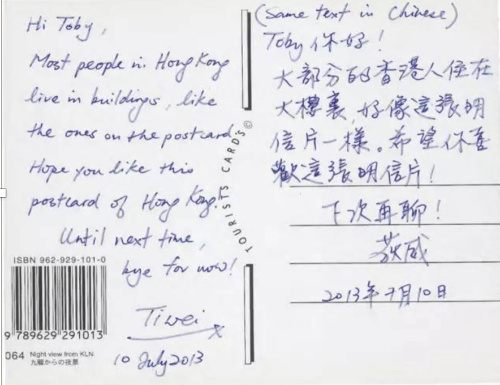 Hi Toby,
Most people in Hong Kong
live in buildings, like
the ones on the postcard.
Hope you like this
postcard of Hong Kong.
Until next time,
bye for now!
Tiwei
x
10 July 2013
ISBN 962-929-101-0
9 789629 291013
064 Night view from KLN
九龍からの夜景
TOURISTS CARDS©
(Same text in Chinese)
Toby 你好!
大部分的香港人住在
大樓裏,好像這張明
信片一樣。希望你喜
歡這張明信片!
下次再聊!
荻威
2013年7月10日